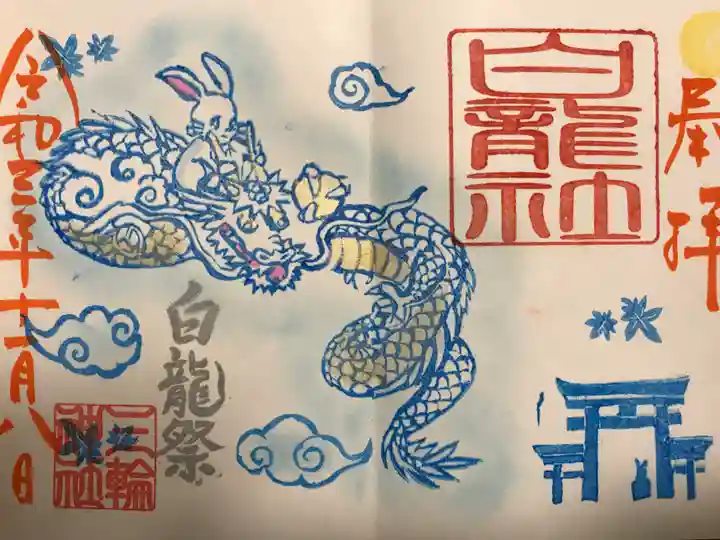 奉拝
白龍社
白龍祭
令和三年十一月八日
三輪神社